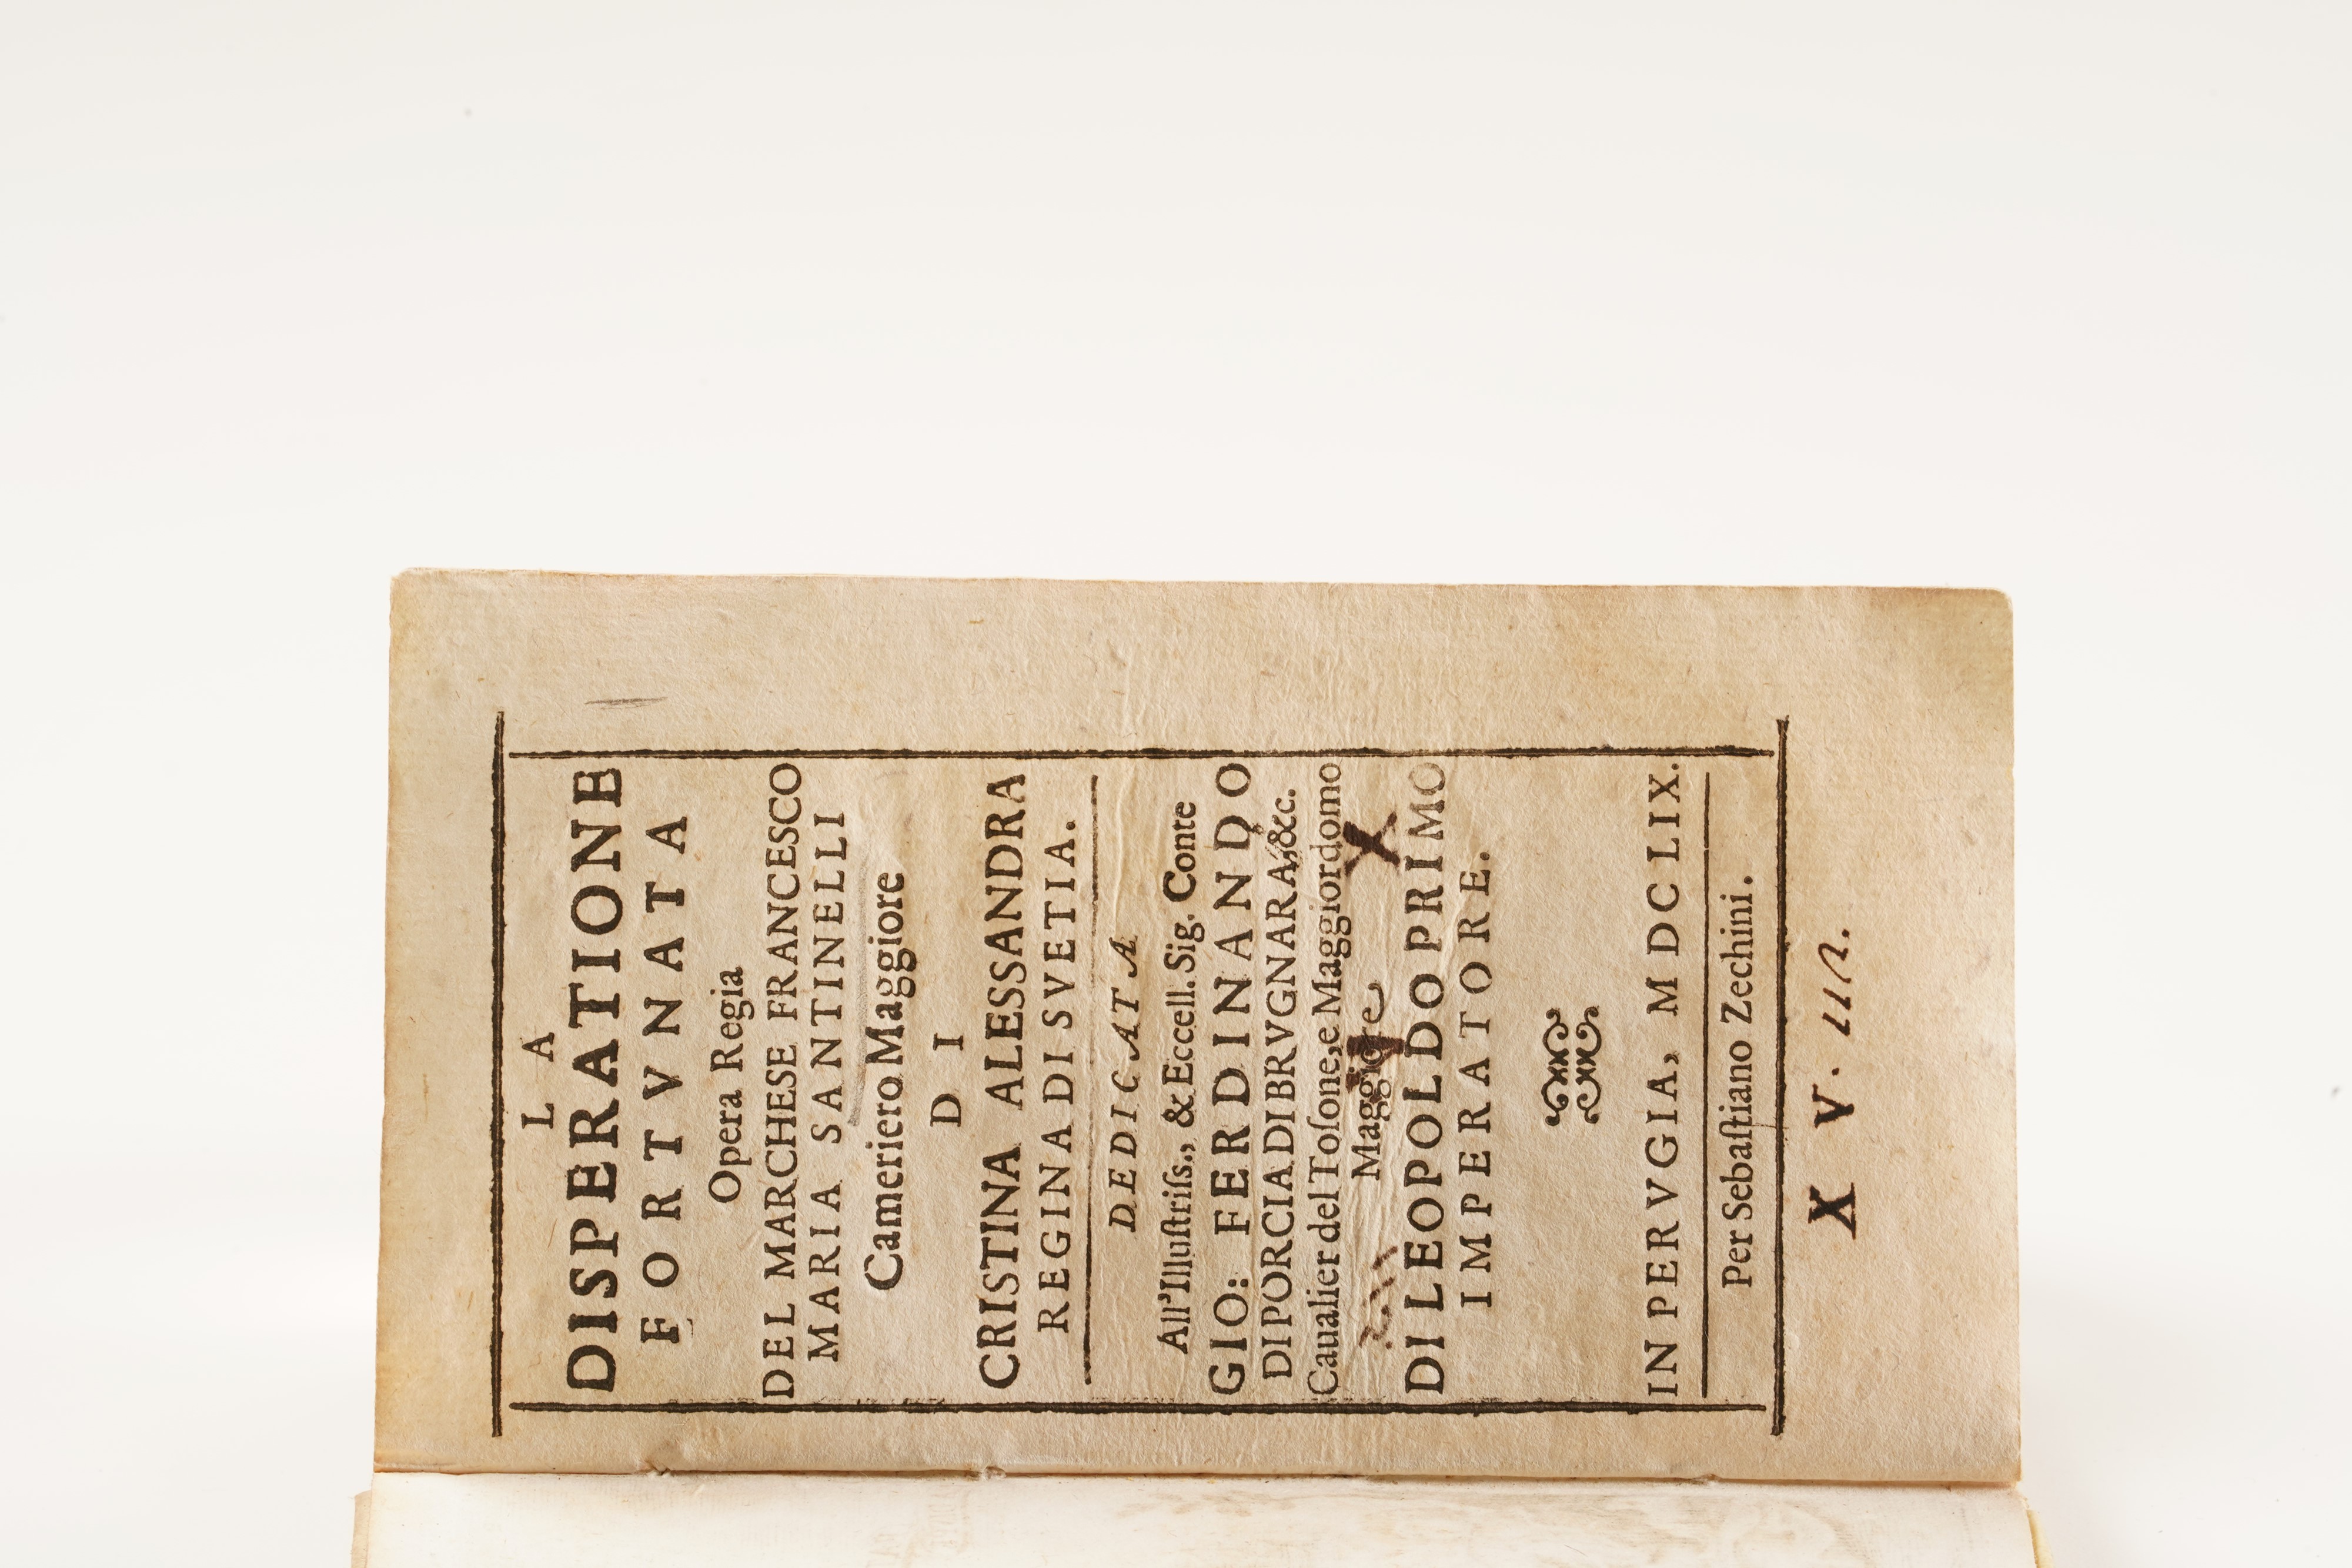 LA
DISPERATIONE
FORTVNATA
Opera Regia
DEL MARCHESE FRANCESCO
MARIA SANTINELLI
Cameriero Maggiore
DI
CRISTINA ALESSANDRA
REGINA DI SVETIA.
DEDICATA
All'Illuſtriſs., & Eccell. Sig. Conte
GIO: FERDINANDO
DI PORCIA DI BRVGNARA, &c.
Caualier del Toſone, e Maggiordomo
Maggiore
DI LEOPOLDO PRIMO
IMPERATORE.
IN PERVGIA, M DC LIX.
Per Sebaſtiano Zechini.
X V.